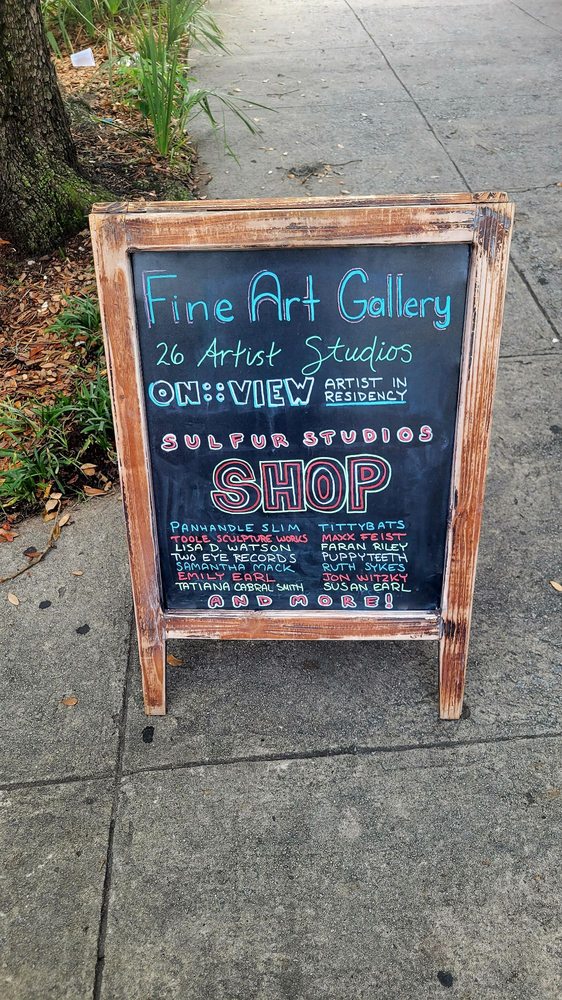 Fine Art Gallery
26 Artist Studios
ON::VIEW ARTIST IN
RESIDENCY
SULFUR STUDIOS
SHOP
PANHANDLE SLIM TITTYBATS
TOOLE SCULPTURE WORKS MAXX FEIST
LISA D. WATSON FARAN RILEY
TWO EYE RECORDS PUPPYTEETH
SAMANTHA MACK RUTH SYKES
EMILY EARL JON WITZKY
TATIANA CABRAL SMITH SUSAN EARL
AND MORE!